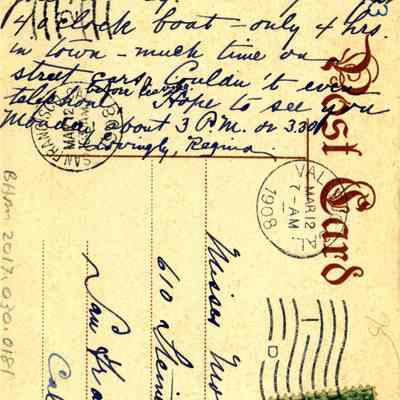 4 o'clock boat - only 4 hrs.
in town - much time on
street cars. Couldn't even
telephone before leaving. Hope to see you
Monday about 3 P.M. or 3.30.
Lovingly, Regina.
Post Card
MAR 12
7-AM
1908
SAN FRANCISCO
MAR 12
Misses
610
San
Cal
BHAM 2017.030.0181